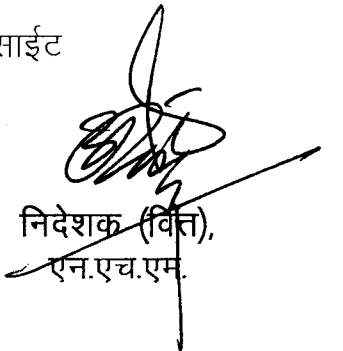 साईट
निदेशक (वित्त),
एन.एच.एम.